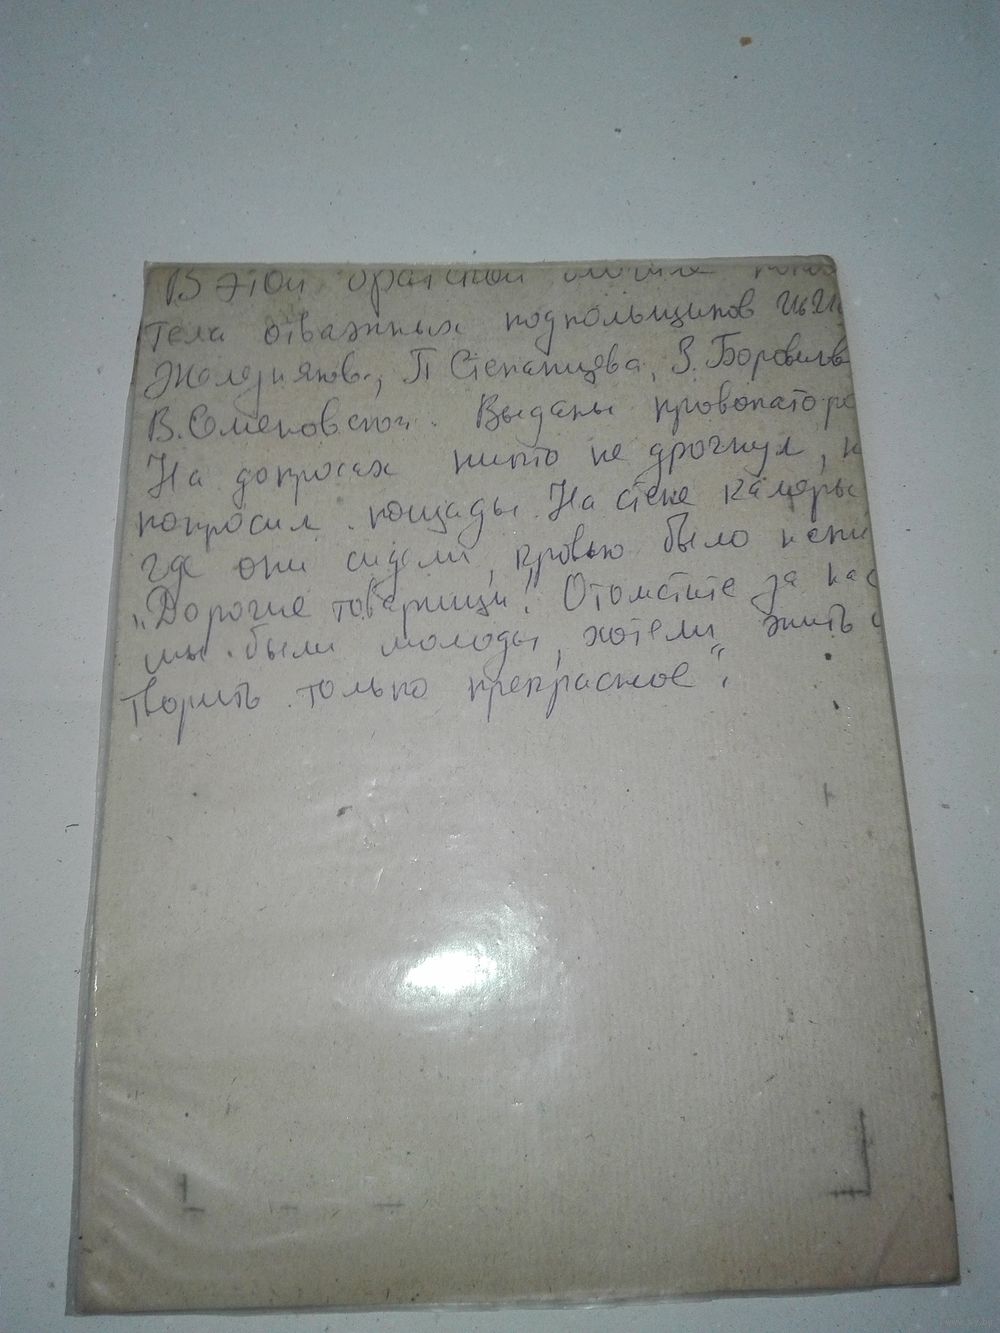 В этой братской могиле
тела отважных подпольщиков
Железняков., П Степанцева, З. Боровиков
В. Сменовской. Выданы провокаторо
На допросах никто не дрогнул, н
попросил пощады. На стене камеры
где они сидели, кровью было напи
„Дорогие товарищи! Отомстите за нас
мы были молоды, хотели жить и
творить только прекрасное".